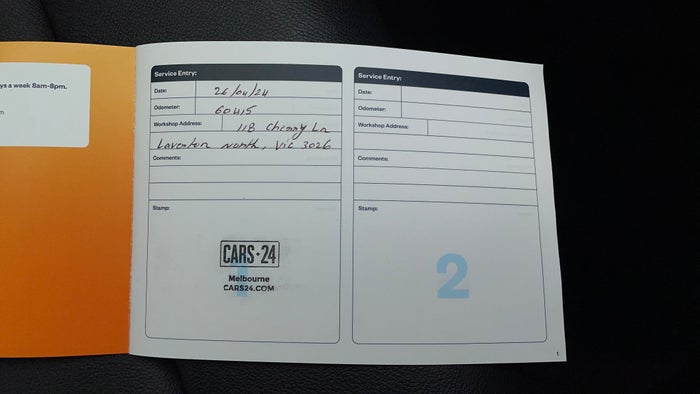 ys a week 8am-8pm.
m
Service Entry:
Date: 26/04/24
Odometer: 60415
Workshop Address: 118 Cherry Ln
Laverton North, Vic 3026
Comments:
Stamp:
1
CARS·24
Melbourne
CARS24.COM
Service Entry:
Date:
Odometer:
Workshop Address:
Comments:
Stamp:
2
1